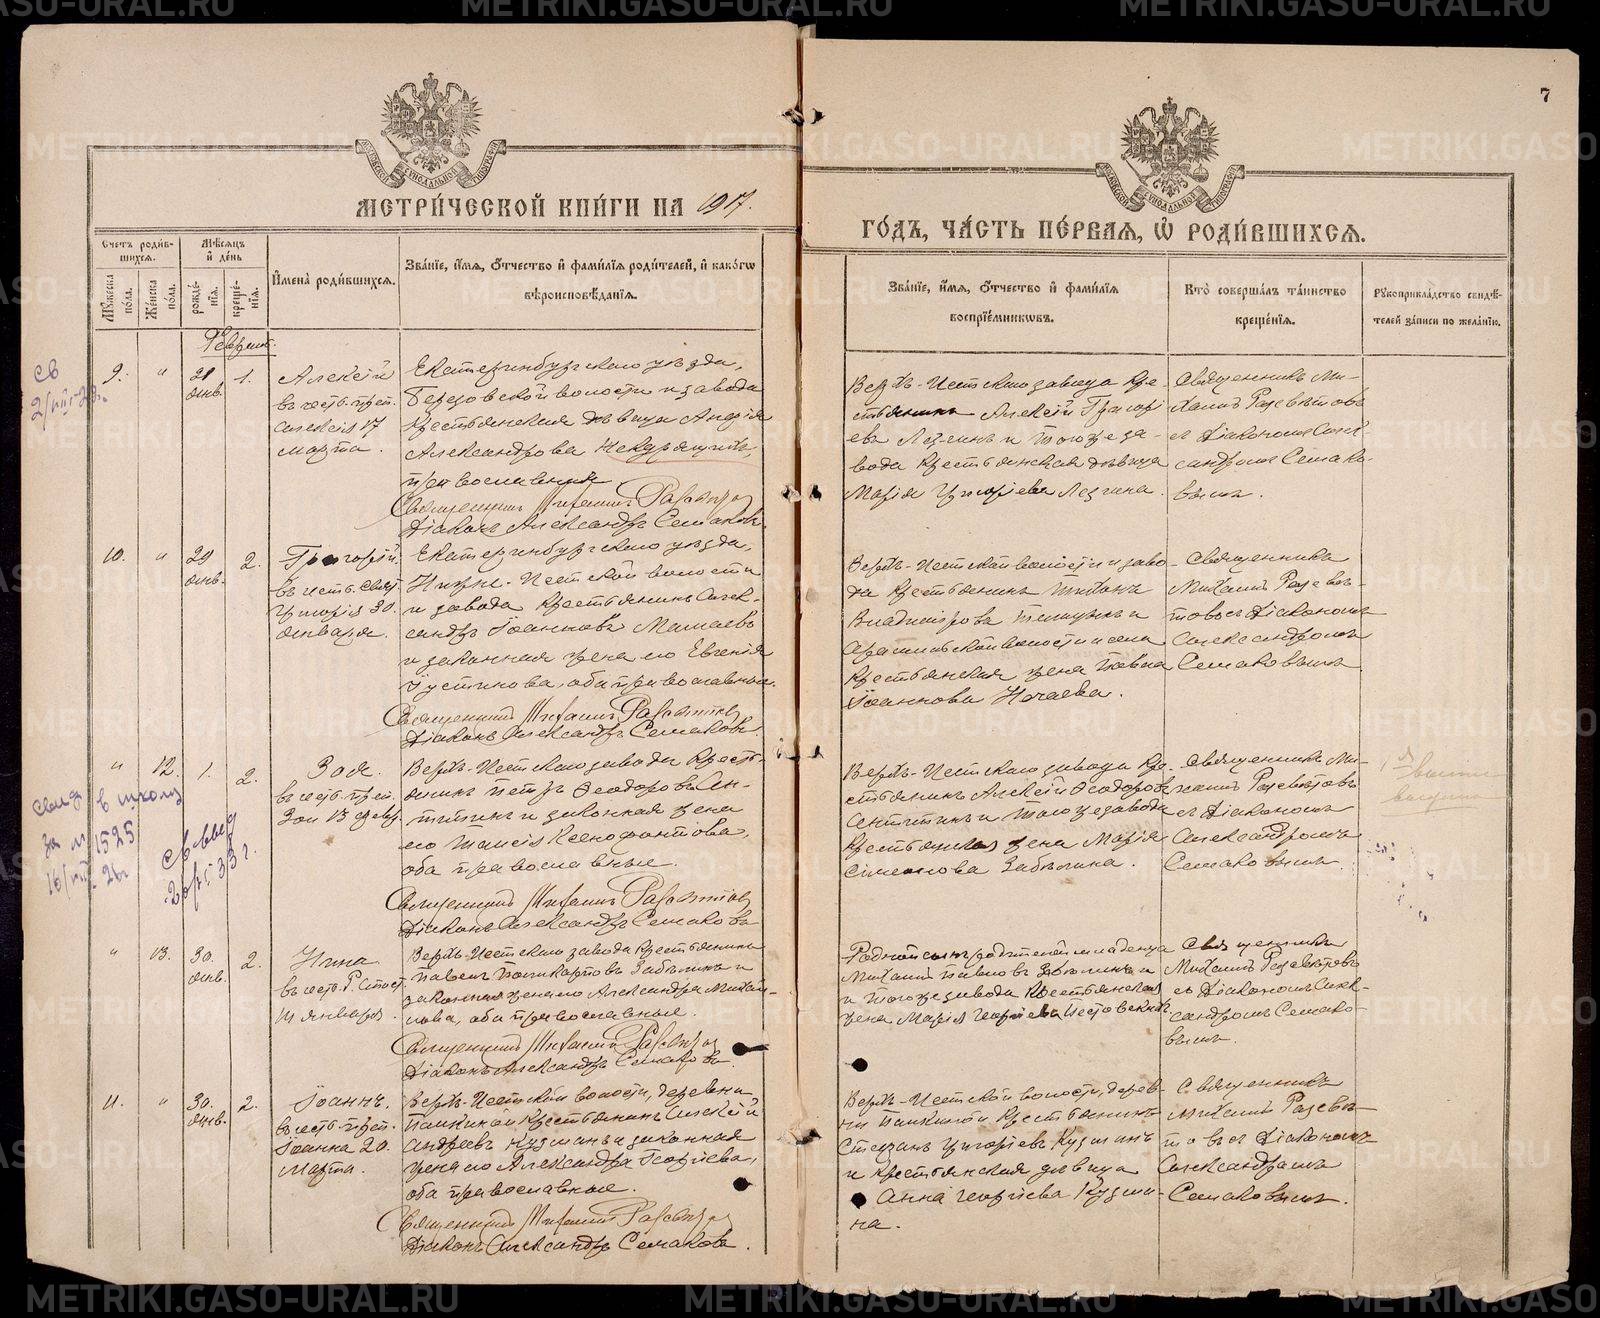 7
МЕТРИ́ЧЕСКОЙ КНИ́ГИ НА 1917.
ГО́ДЪ, ЧА́СТЬ ПЕ́РВАЯ, Ѿ РОДИ́ВШИХСЯ.
Счетъ роди́в-
шихся.
Мѣ́сяцъ
и҆ де́нь
Мꙋ́жеска
по́ла.
Же́нска
по́ла.
рожде́-
нїя.
креще́-
нїя.
И҆мена̀ роди́вшихся.
Зва́нїе, и҆́мя, ѻ҆́тчество и҆ фами́лїя роди́телей, и҆ како́гѡ
вѣроисповѣ́данїя.
Зва́нїе, и҆́мя, ѻ҆́тчество и҆ фами́лїя
воспрїе́мникѡвъ.
Кто̀ соверша́лъ та́инство
креще́нїя.
Рꙋкоприкла́дство свидѣ́-
телей за́писи по жела́нїю.
Февраль.
9. " 29 янв. 1.
Алексій
въ честь преп.
Алексія 17
марта.
Екатеринбургскаго уѣзда,
Березовской волости и завода
крестьянская дѣвица
Александрова Некурящихъ,
православная
Священникъ Михаилъ
Діаконъ Александръ Семаковъ.
Верхъ-Исетскаго завода кре-
стьянинъ Алексій Григорі-
евъ Лезгинъ и тогоже за-
вода крестьянская дѣвица
Марія Григоріева Лезгина.
Священникъ Ми-
хаилъ
съ Діакономъ Алек-
сандромъ Семако-
вымъ.
10. " 29 янв. 2.
Григорій.
въ честь Свят.
Григорія 30.
января.
Екатеринбургскаго уѣзда,
Нижне-Исетской волости
и завода крестьянинъ Алек-
сандръ Іоанновъ Мамаевъ
и законная жена его Евгенія
Іустинова, оба православные.
Священникъ Михаилъ
Діаконъ Александръ Семаковъ.
Верхъ-Исетской волости и заво-
да крестьянинъ Тихонъ
Владиміровъ и
волости и села
крестьянская жена Павла
Іоаннова Нечаева.
Священникъ
Михаилъ
съ Діакономъ
Александромъ
Семаковымъ
" 12. 1. 2.
Зоя.
въ честь преп.
Зои 13 февр.
Верхъ-Исетскаго завода крест-
янинъ Петръ Ѳеодоровъ Ан-
типинъ и законная жена
его Таисія Ксенофонтова,
оба православные.
Священникъ Михаилъ
Діаконъ Александръ Семаковъ
Верхъ-Исетскаго завода кре-
стьянинъ Алексій Ѳеодоровъ
Антипинъ и тогоже завода
крестьянская жена Марія
Симеонова Забѣлина.
Священникъ Ми-
хаилъ
съ Діакономъ
Александромъ
Семаковымъ
" 13. 30. янв. 2.
Нина
января.
Верхъ-Исетскаго завода крестьянинъ
Павелъ Поликарповъ Забѣлинъ и
законная жена его Александра Михаи-
лова, оба православные.
Священникъ Михаилъ
Діаконъ Александръ Семаковъ
Родной сынъ родителей младенца
Михаилъ Павловъ Забѣлинъ и
и тогоже завода крестьянская
жена Марія Георгіева
Священникъ
Михаилъ
съ Діакономъ Алек-
сандромъ Семако-
вымъ.
11. " 30. янв. 2.
Іоаннъ.
въ честь преп.
Іоанна 20.
марта.
Верхъ-Исетской волости, деревни
Палкиной крестьянинъ Алексій
Андреевъ Кузминъ и законная
жена его Александра Георгіева,
оба православные.
Священникъ Михаилъ
Діаконъ Александръ Семаковъ.
Верхъ-Исетской волости, дерев-
ни Палкиной крестьянинъ
Стефанъ Григоріевъ Кузминъ
и крестьянская дѣвица
Анна Георгіева Кузми-
на.
Священникъ
Михаилъ
съ Діакономъ
Александромъ
Семаковымъ.
METRIKI.GASO-URAL.RU